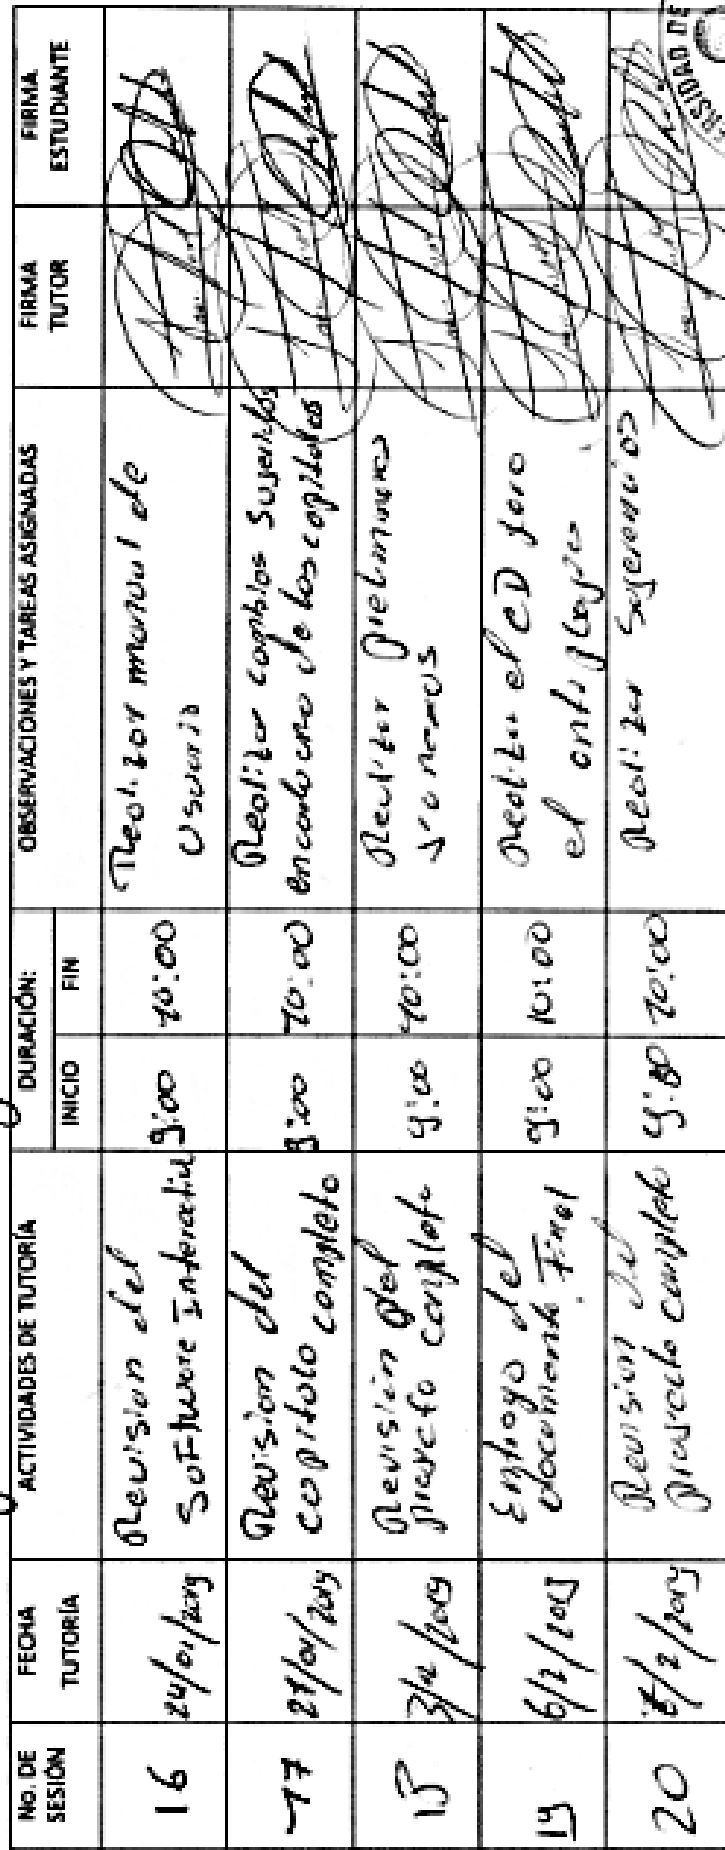 No. DE SESIÓN
FECHA TUTORÍA
ACTIVIDADES DE TUTORÍA
DURACIÓN:
INICIO
FIN
OBSERVACIONES Y TAREAS ASIGNADAS
FIRMA TUTOR
FIRMA ESTUDIANTE
16
24/01/2019
Revision del
Software Interactiv
9:00
10:00
Realizar manual de
Usuario
17
27/01/2019
Revision del
capitulo completo
9:00
10:00
Realizar cambios Sugeridos
en cada uno de los capitulos
3/2/2019
Revisión del
proyecto completo
9:00
10:00
Realizar preliminares
19
6/2/2019
Entrega del
documento Final
9:00
10:00
Realizar el CD para
el antiplagio
20
Revision del
proyecto completo
9:00
10:00
Realizar sugerencias
RSIDAD DE